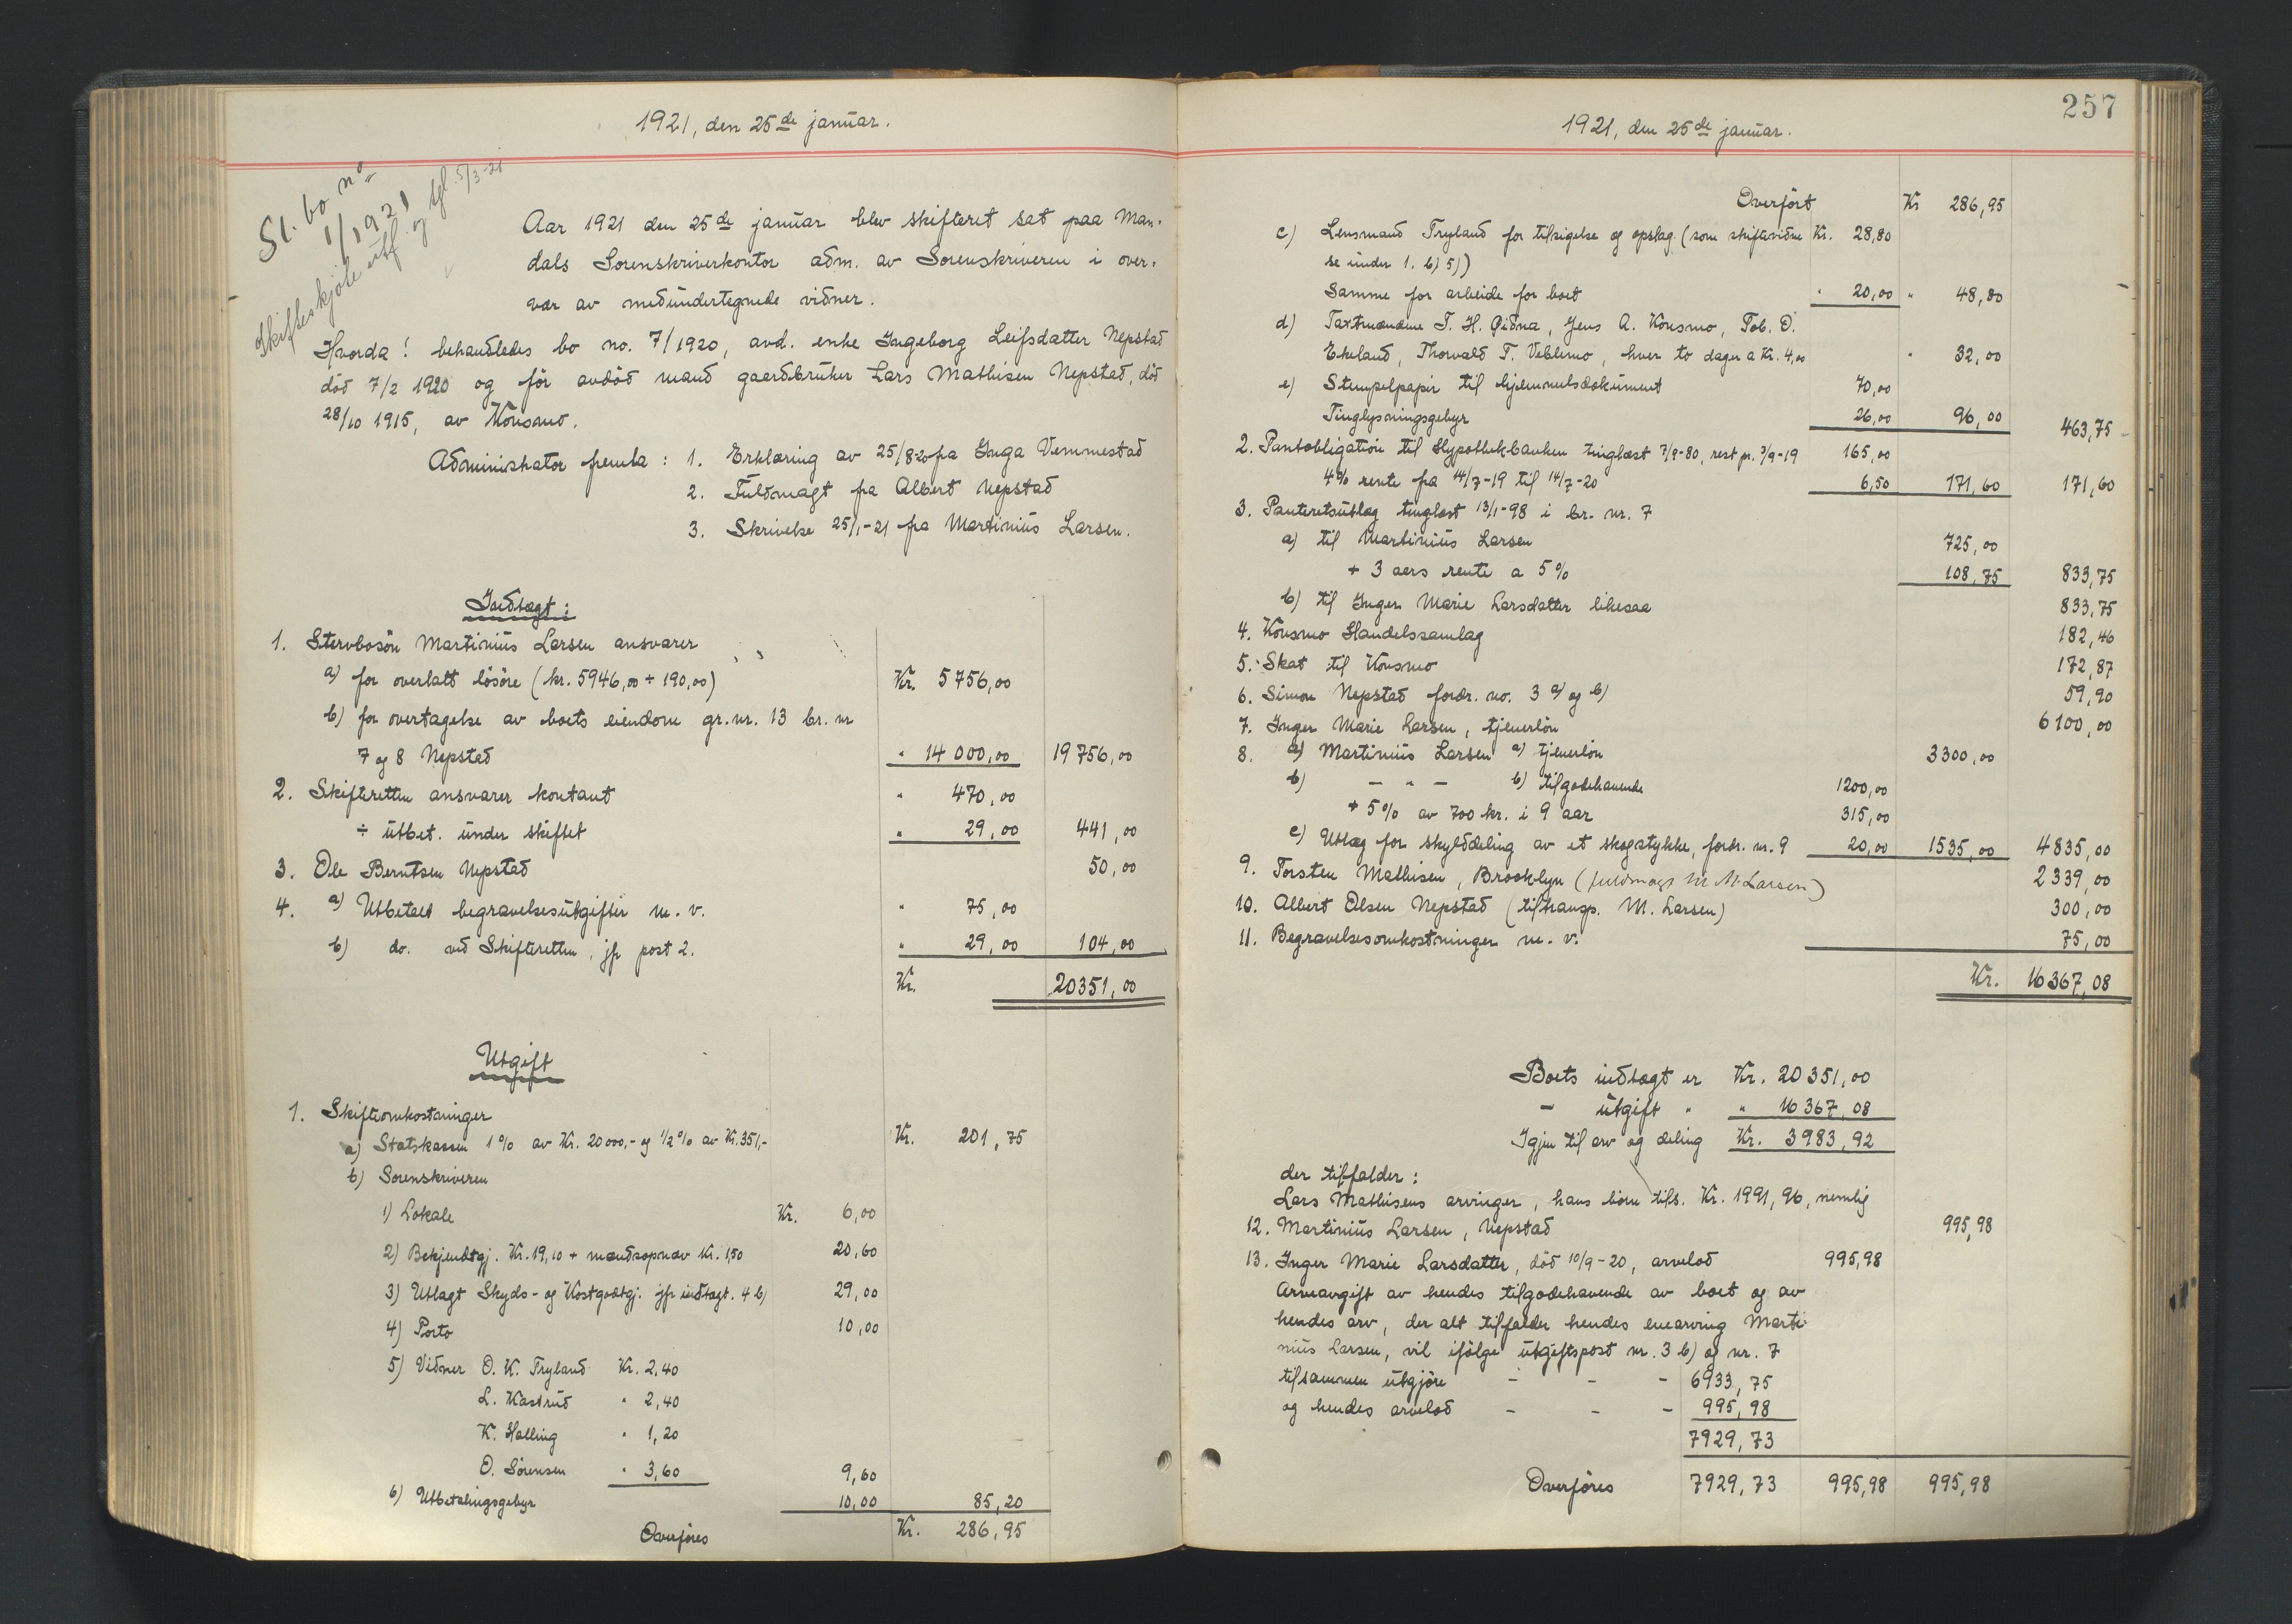 1921, den 25de januar.
St. bo no
1/1921
Skifteskjöte utf. og tgl. 5/3-21
Aar 1921 den 25de januar blev skifteret sat paa Man-
dals Sorenskriverkontor adm. av Sorenskriveren i over-
vær av medundertegnede vidner.
Hvorda! behandledes bo no. 7/1920, avd. enke Ingeborg Leifsdatter Nepstad
död 7/2 1920 og för avdöd mand gaardbruker Lars Mathisen Nepstad, död
28/10 1915, av Konsmo.
Administrator fremla: 1. Erklæring av 25/8 20 fra Inga Vemmestad
2. Fuldmagt fra Albert Nepstad
3. Skrivelse 25/1-21 fra Martinius Larsen.
Indtægt:
1. Stervbosön Martinius Larsen ansvarer
a) for overlatt lösöre (kr. 5946,00 ÷ 190,00) Kr. 5756,00
b) for overtagelse av boets eiendom gr.nr. 13 br. nr
7 og 8 Nepstad " 14 000,00 19756,00
2. Skifteretten ansvarer kontant " 470,00
÷ utbet. under skiftet " 29,00 441,00
3. Ole Berntsen Nepstad 50,00
4. a) Utbetalt begravelsesutgifter m. v. " 75,00
b) do. ved Skifteretten, jfr post 2. " 29,00 104,00
Kr. 20351,00
Utgift
1. Skifteomkostninger
a) Statskassen 1% av Kr. 20000,- og 1/2% av Kr. 351,- Kr. 201,75
b) Sorenskriveren
1) Lokale Kr. 6,00
2) Bekjendtgj. Kr. 19,10 + mandsopnav Kr. 1,50 20,60
3) Utlagt Skyds- og Kostgodtgj. jfr indtægt. 4 b) 29,00
4) Porto 10,00
5) Vidner O. K. Tryland Kr. 2,40
L. Kastrud " 2,40
K. Halling " 1,20
O. Sörensen " 3,60 9,60
6) Utbetalingsgebyr 10,00 85,20
Overföres Kr. 286,95
257
1921, den 25de januar.
Overfört Kr 286,95
c) Lensmand Tryland for tilsigelse og opslag (som skiftevidne Kr. 28,80
se under 1. b) 5))
Samme for arbeide for boet " 20,00 " 48,80
d) Taxtmændene T. H. Öidna, Jens A. Konsmo, Tob. O.
Ekeland, Thorvald T. Veblemo, hver to dager a Kr. 4,00 " 32,00
e) Stempelpapir til hjemmelsdokument 70,00
Tinglysningsgebyr 26,00 96,00 463,75
2. Pantobligation til Hypothekbanken tinglæst 7/9-80, rest pr. 7/9-19 165,00
4% rente fra 14/7-19 til 14/7-20 6,50 171,60 171,60
3. Panteretsutlæg tinglæst 13/1-98 i br. nr. 7
a) til Martinius Larsen 725,00
+ 3 aars rente a 5% 108,75 833,75
b) til Inger Marie Larsdatter likesaa 833,75
4. Konsmo Handelssamlag 182,46
5. Skat til Konsmo 172,87
6. Simon Nepstad fordr. no. 3 a) og b) 59,90
7. Inger Marie Larsen, tjenerlön 6100,00
8. a) Martinius Larsen a) tjenerlön 3300,00
b) - " - b) tilgodehavende 1200,00
+ 5% av 700 kr. i 9 aar 315,00
c) Utlæg for skylddeling av et skogstykke, fordr. nr. 9 20,00 1535,00 4835,00
9. Torsten Mathisen, Brooklyn (fuldmægt M. Larsen) 2339,00
10. Albert Olsen Nepstad (tiltransp. M. Larsen) 300,00
11. Begravelsesomkostninger m. v. 75,00
Kr. 16367,08
Boets indtægt er Kr. 20351,00
- utgift " " 16367,08
Igjen til arv og deling Kr. 3983,92
der tilfalder:
Lars Mathisens arvinger, hans börn tils. Kr. 1991,96, nemlig
12. Martinius Larsen, Nepstad 995,98
13. Inger Marie Larsdatter, död 10/9-20, arvelod 995,98
Arveavgift av hendes tilgodehavende av boet og av
hendes arv, der alt tilfalder hendes enearving Marti-
nius Larsen, vil ifölge utgiftspost nr. 3 b) og nr. 7
tilsammen utgjöre - - - 6933,75
og hendes arvelod - - - 995,98
7929,73
Overföres 7929,73 995,98 995,98